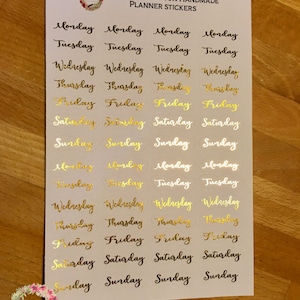 HANDMADE
PLANNER STICKERS
Monday Monday Monday Monday
Tuesday Tuesday Tuesday Tuesday
Wednesday Wednesday Wednesday Wednesday
Thursday Thursday Thursday Thursday
Friday Friday Friday Friday
Saturday Saturday Saturday Saturday
Sunday Sunday Sunday Sunday
Monday Monday Monday Monday
Tuesday Tuesday Tuesday Tuesday
Wednesday Wednesday Wednesday Wednesday
Thursday Thursday Thursday Thursday
Friday Friday Friday Friday
Saturday Saturday Saturday Saturday
Sunday Sunday Sunday Sunday